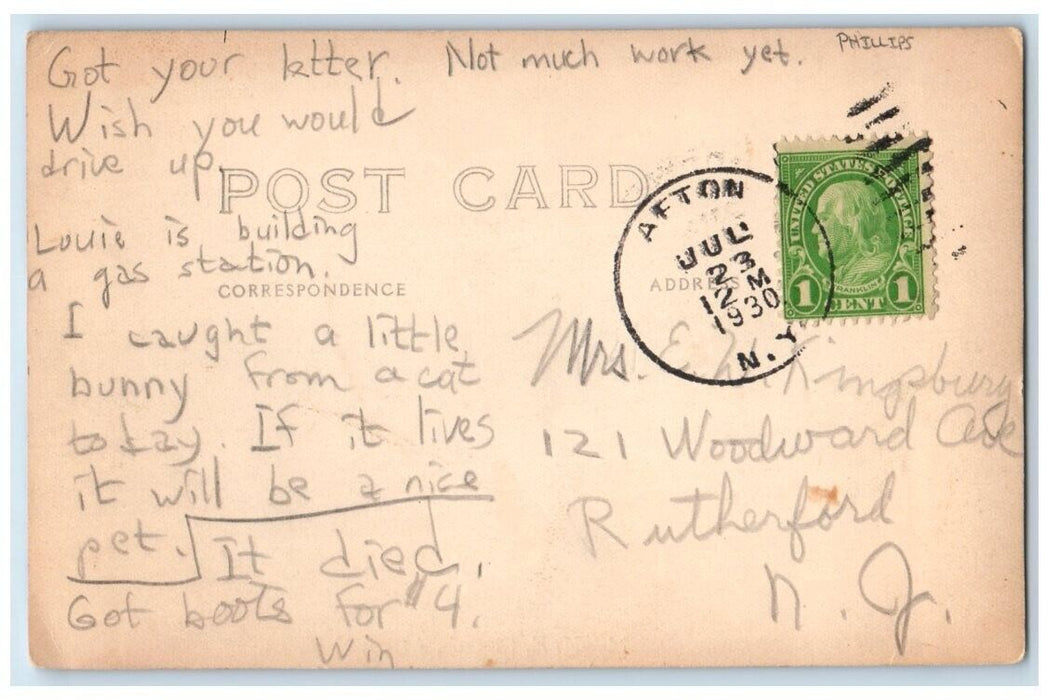 Got your letter. Not much work yet.
PHILLIPS
Wish you would
drive up.
POST CARD
Louie is building
a gas station.
CORRESPONDENCE
ADDRESS
I caught a little
bunny from a cat
today. If it lives
it will be a nice
pet. It died.
Got boots for $4.
Win
AFTON
JUL
23
12 M
1930
N.Y.
UNITED STATES POSTAGE
FRANKLIN
1 CENT 1
Mrs. E. W. Kingsbury
121 Woodward Ave
Rutherford
N. J.